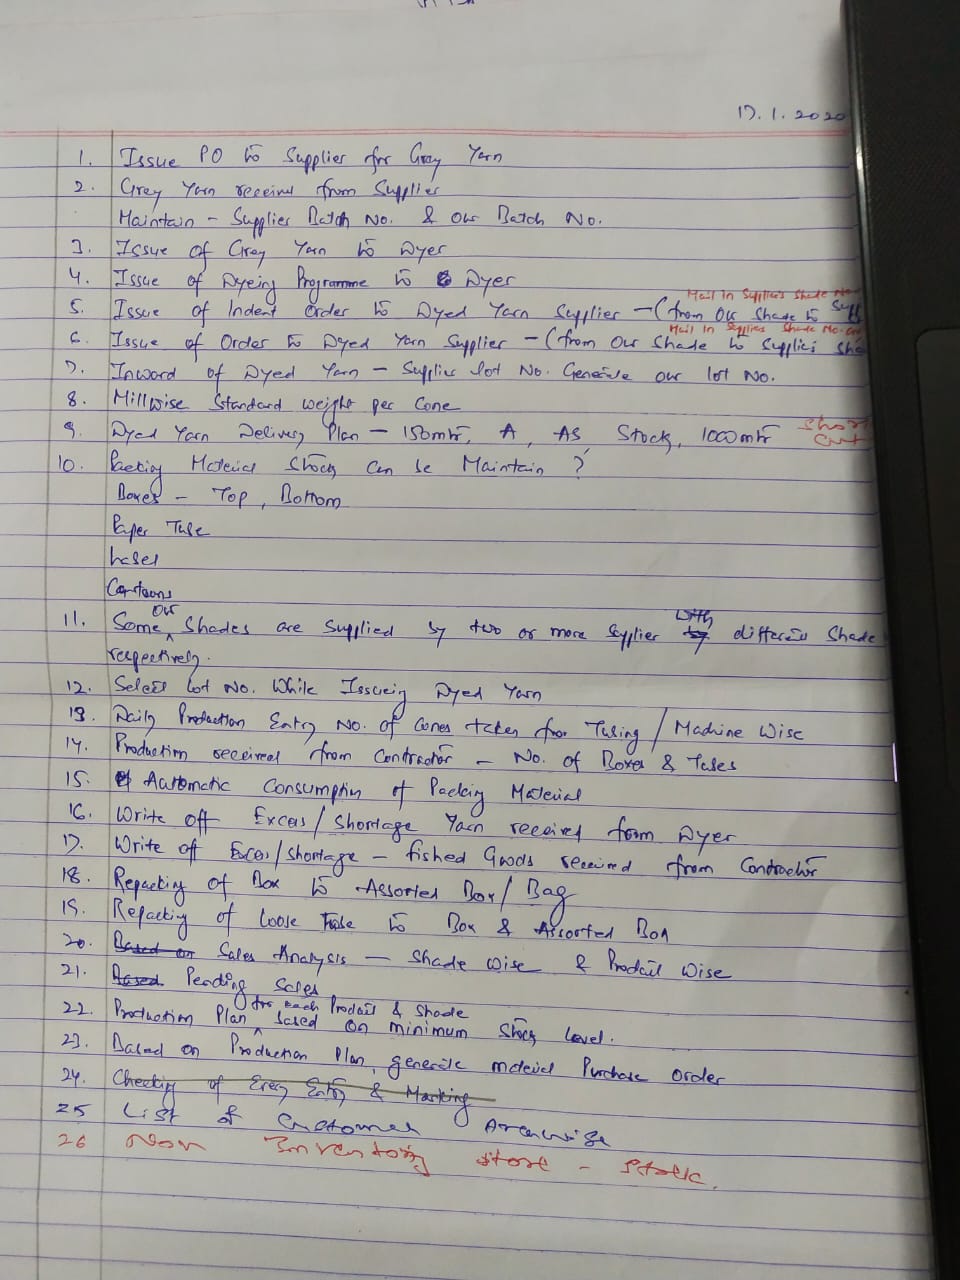 17.1.2020
1. Issue PO to Supplier for Grey Yarn
2. Grey Yarn received from Supplier
Maintain - Supplier Batch No. & Our Batch No.
3. Issue of Grey Yarn to Dyer
4. Issue of Dyeing Programme to Dyer
Mail In Supplier Shade No
5. Issue of Indent Order to Dyed Yarn Supplier - (from Our Shade to Supp
Mail In Supplier Shade No.
6. Issue of Order to Dyed Yarn Supplier - (from Our Shade to Supplier Sha
7. Inward of Dyed Yarn - Supplier lot No. Generate our lot No.
8. Millwise Standard weight per Cone
9. Dyed Yarn Delivery Plan - 150mtr, A, AS Stock, 1000mtr Short Cut
10. Packing Material Stock Can be Maintain ?
Boxes - Top, Bottom
Paper Tube
Label
Cartoons
11. Some our Shades are Supplied by two or more Supplier with different Shade
respectively.
12. Select lot No. While Issueing Dyed Yarn
13. Daily Production Entry No. of Cones taken for Tubing / Machine Wise
14. Production received from Contractor - No. of Boxes & Tubes
15. Automatic Consumption of Packing Material
16. Write off Excess / Shortage Yarn received from Dyer
17. Write off Excess / Shortage - fished Goods received from Contractor
18. Repacking of Box to Assorted Box / Bag
19. Repacking of loose Tube to Box & Assorted Box
20. Based on Sales Analysis - Shade Wise & Product Wise
21. Based Pending Sales
22. Production Plan for each Product & Shade based on minimum Stock level.
23. Based on Production Plan, generate material Purchase Order
24. Checking of Every Entry & Marking
25 List of Customer Areawise
26 Non Inventory Store - Stock.